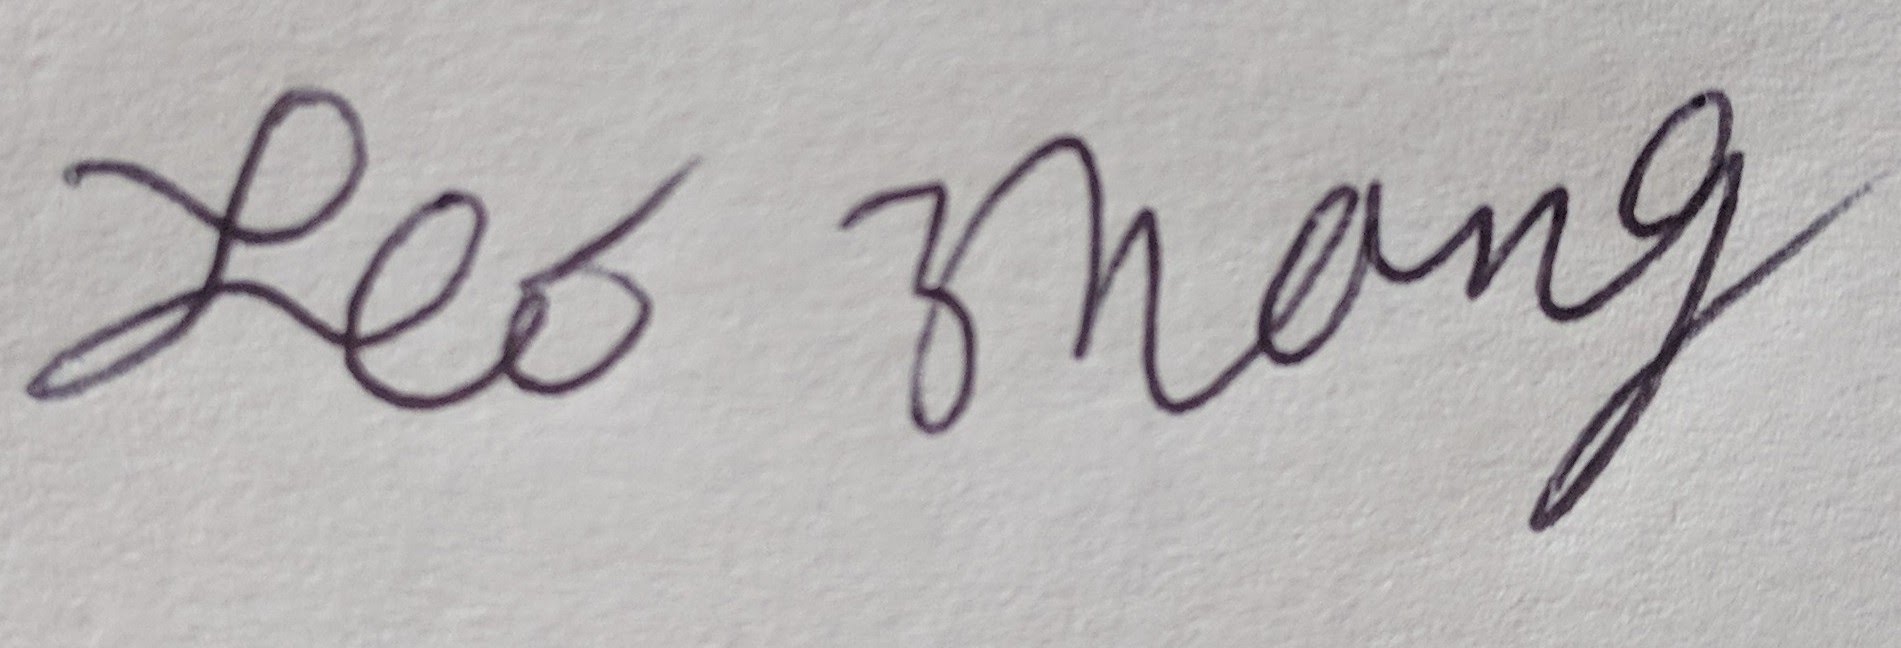 Leo Zhang